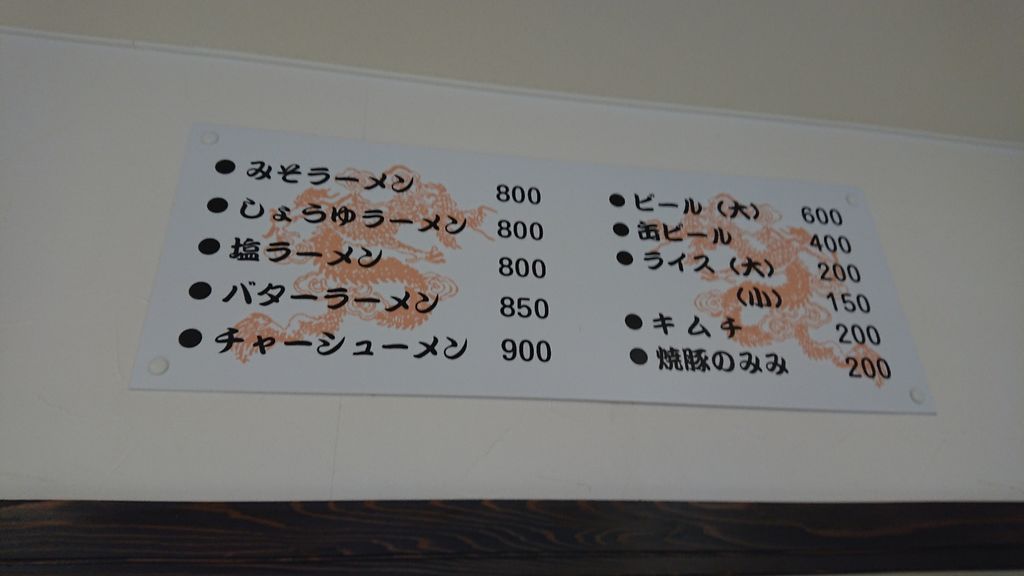 ●みそラーメン 800
●しょうゆラーメン 800
●塩ラーメン 800
●バターラーメン 850
●チャーシューメン 900
●ビール(大) 600
●缶ビール 400
●ライス(大) 200
(小) 150
●キムチ 200
●焼豚のみみ 200